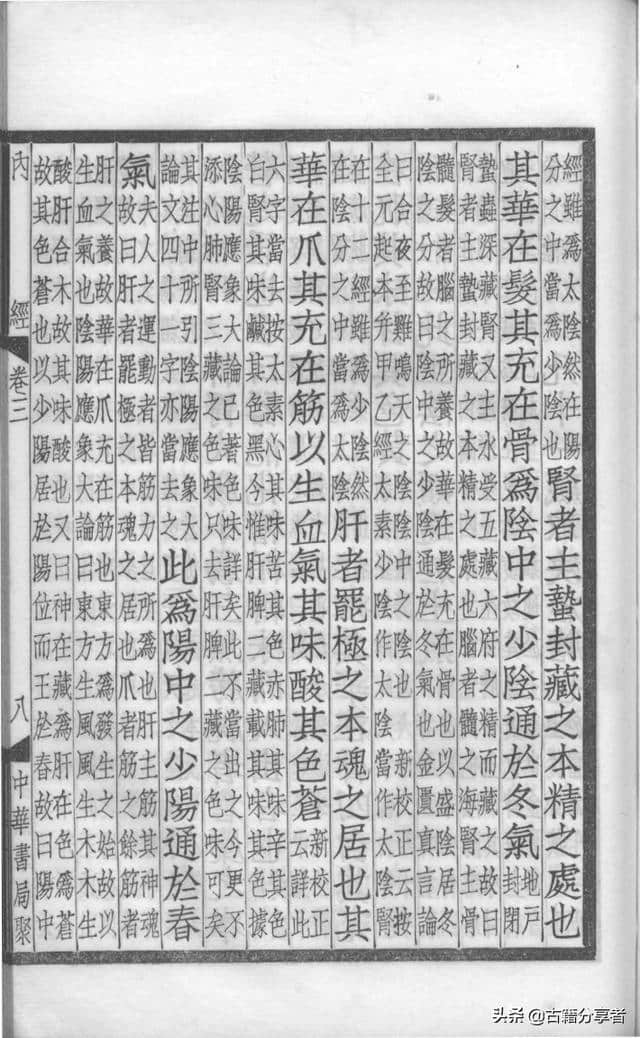 經雖爲太陰然在陽
分之中當爲少陰也
腎者主蟄封藏之本精之處也
其華在髮其充在骨爲陰中之少陰通於冬氣
地戶
封閉
蟄蟲深藏腎又主水受五藏六府之精而藏之故曰
腎者主蟄封藏之本精之處也腦者髓之海腎主骨
髓髮者腦之所養故華在髮充在骨也以盛陰居冬
陰之分故曰陰中之少陰通於冬氣也金匱真言論
曰合夜至雞鳴天之陰陰中之陰也 新校正云按
全元起本并甲乙經太素少陰作太陰當作太陰腎
在十二經雖爲少陰然
在陰分之中當爲太陰
肝者罷極之本魂之居也其
華在爪其充在筋以生血氣其味酸其色蒼
新校正
云詳此
六字當去按太素心其味苦其色赤肺其味辛其色
白腎其味鹹其色黑今惟肝脾二藏載其味其色據
陰陽應象大論已著色味詳矣此不當出之今更不
添心肺腎三藏之色味只去肝脾二藏之色味可矣
其注中所引陰陽應象大
論文四十一字亦當去之
此爲陽中之少陽通於春
氣
夫人之運動者皆筋力之所爲也肝主筋其神魂
故曰肝者罷極之本魂之居也爪者筋之餘筋者
肝之養故華在爪充在筋也東方爲發生之始故以
生血氣也陰陽應象大論曰東方生風風生木木生
酸肝合木故其味酸也又曰神在藏爲肝在色爲蒼
故其色蒼也以少陽居於陽位而王於春故曰陽中
內經 卷三 八 中華書局聚
头条 @古籍分享者